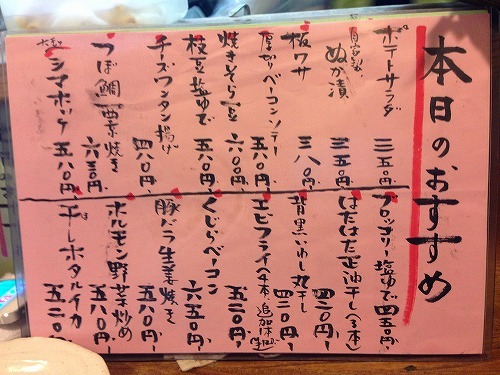 本日のおすすめ
ポテトサラダ 三五〇円
自家製 ぬか漬 三五〇円
板ワサ 三八〇円
厚切ベーコンソテー 五八〇円
焼きそら豆 六〇〇円
枝豆塩ゆで 五八〇円
チーズワンタン揚げ 四八〇円
つぼ鯛西京焼き 六五〇円
シマホッケ 五八〇円
ブロッコリー塩ゆで 四五〇円
はたはた正油干し(3本) 四二〇円
背黒いわし丸干し 四二〇円
エビフライ(4本) 五二〇円
くじらベーコン 六五〇円
豚バラ生姜焼き 五八〇円
ホルモン野菜炒め 五八〇円
干しホタルイカ 五二〇円